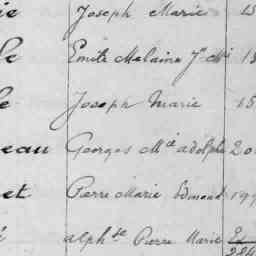 ie Joseph Marie 15
le Emile Melaine Jh Mi 13
le Joseph Marie 15
eau Georges Mie adolphe 20
et Pierre Marie Edmond 199
alphse Pierre Marie